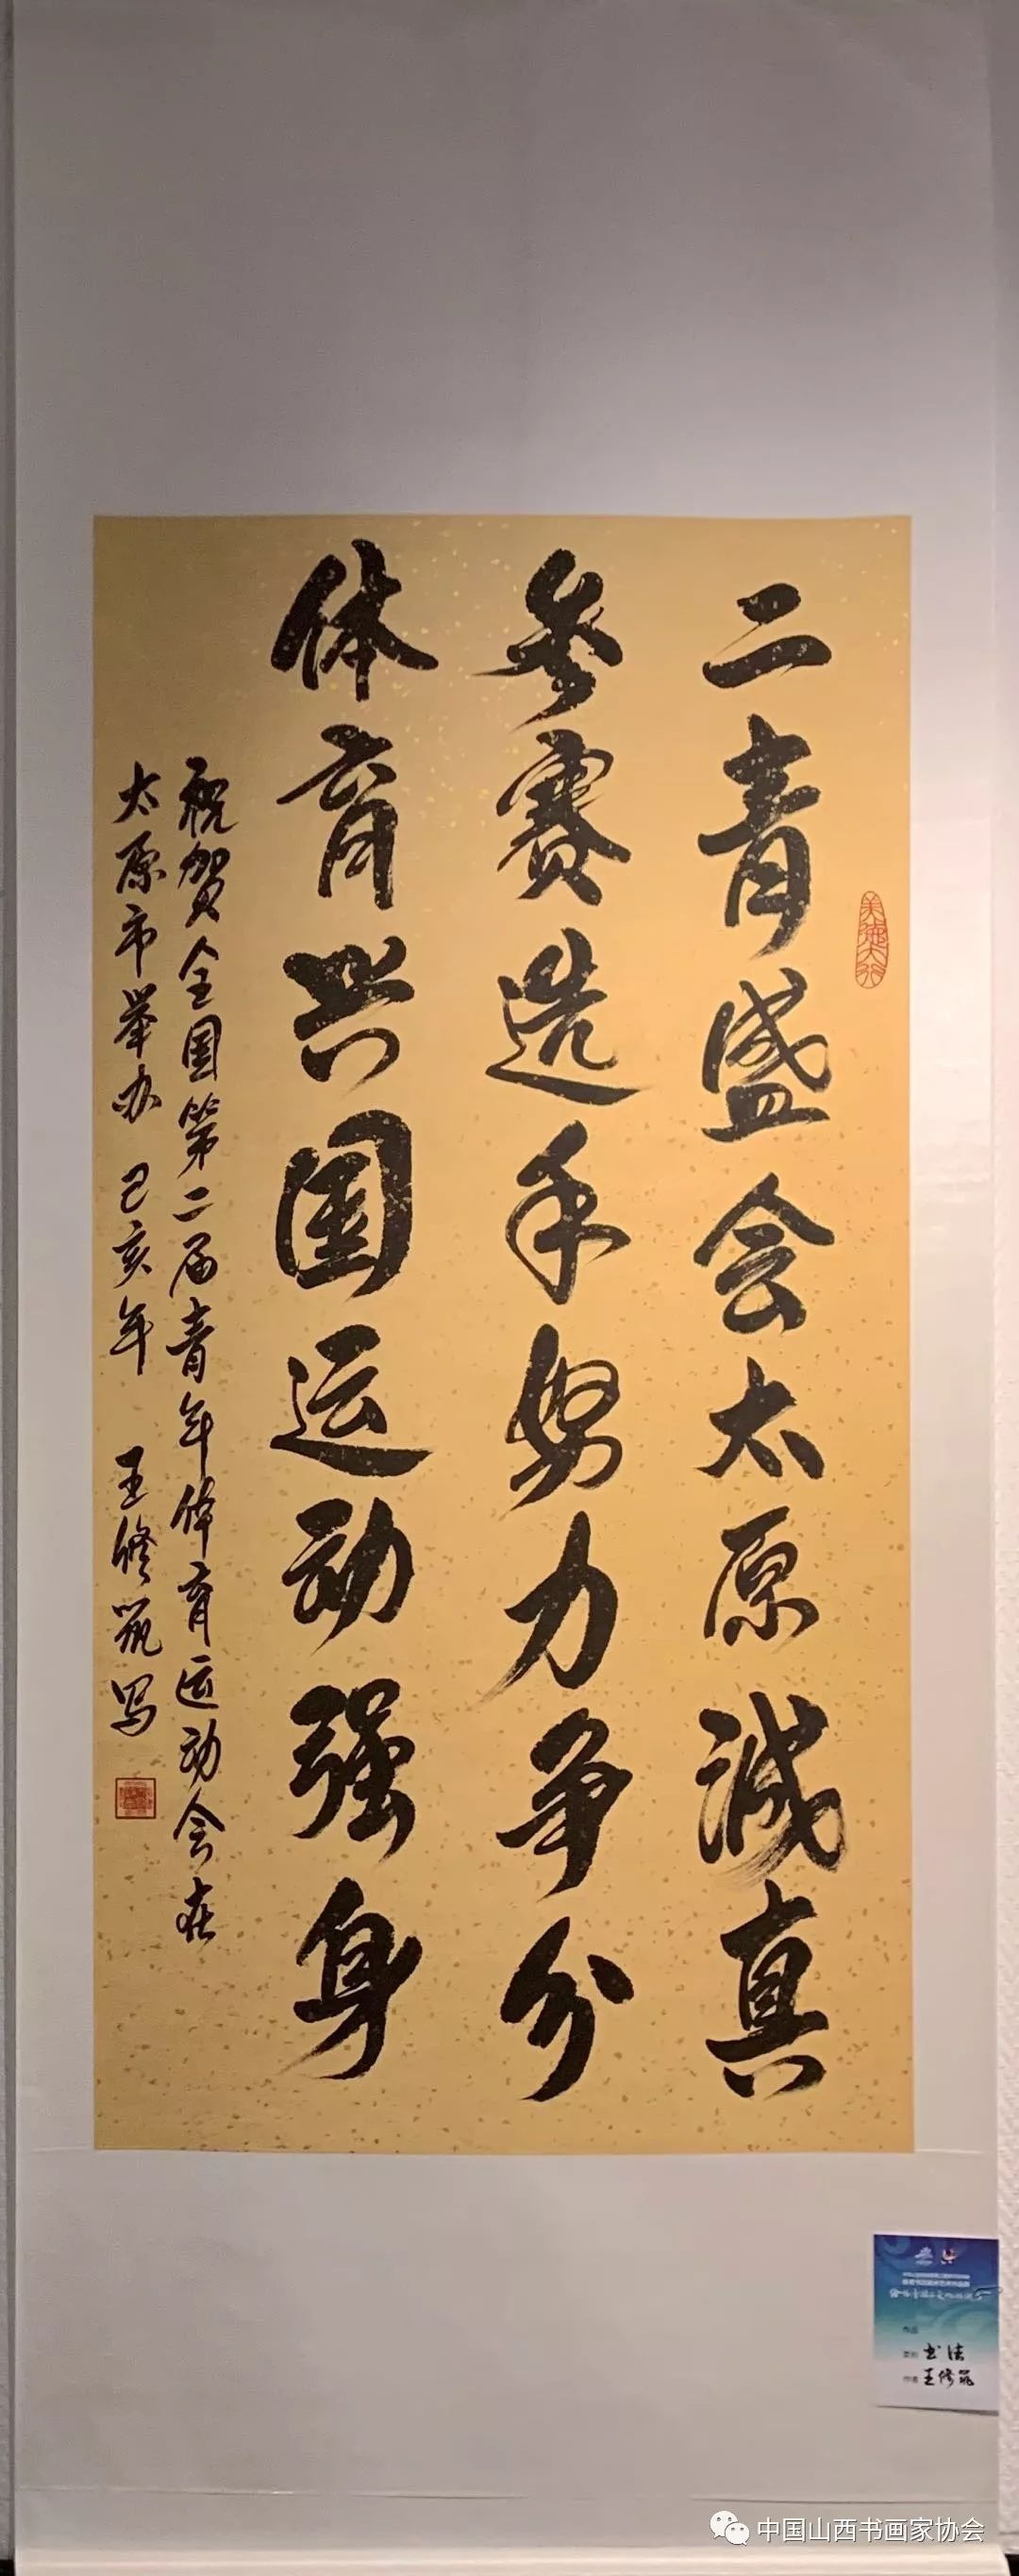 二青盛会太原诚真
参赛选手努力争分
体育兴国运动强身
祝贺全国第二届青年体育运动会在
太原市举办 己亥年 王修筑写
书法
王修筑
中国山西书画家协会